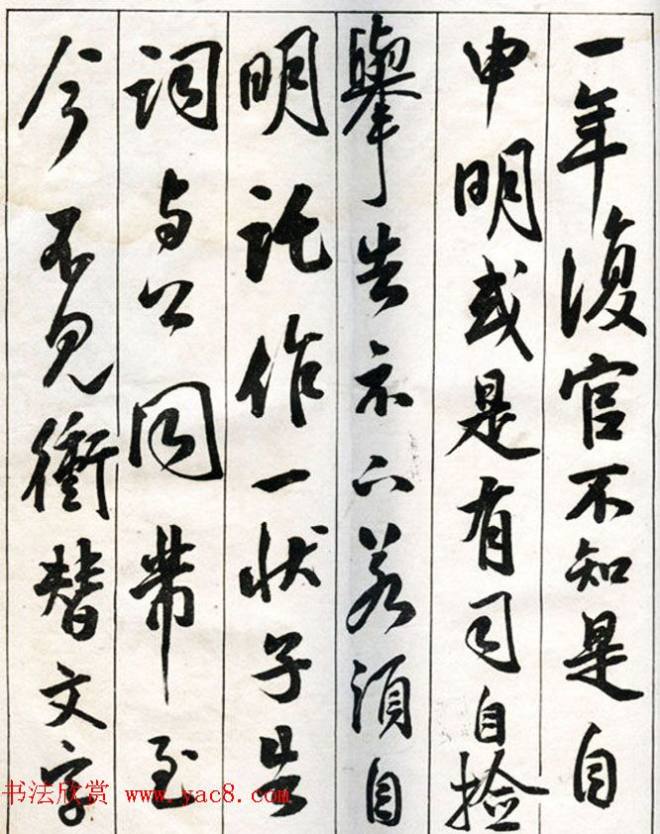 一年復官不知是自
申明或是有司自撿
舉告示下若須自
明託作一状子告
詞与公同带至
今不見衝替文字
书法欣赏 www.yac8.com